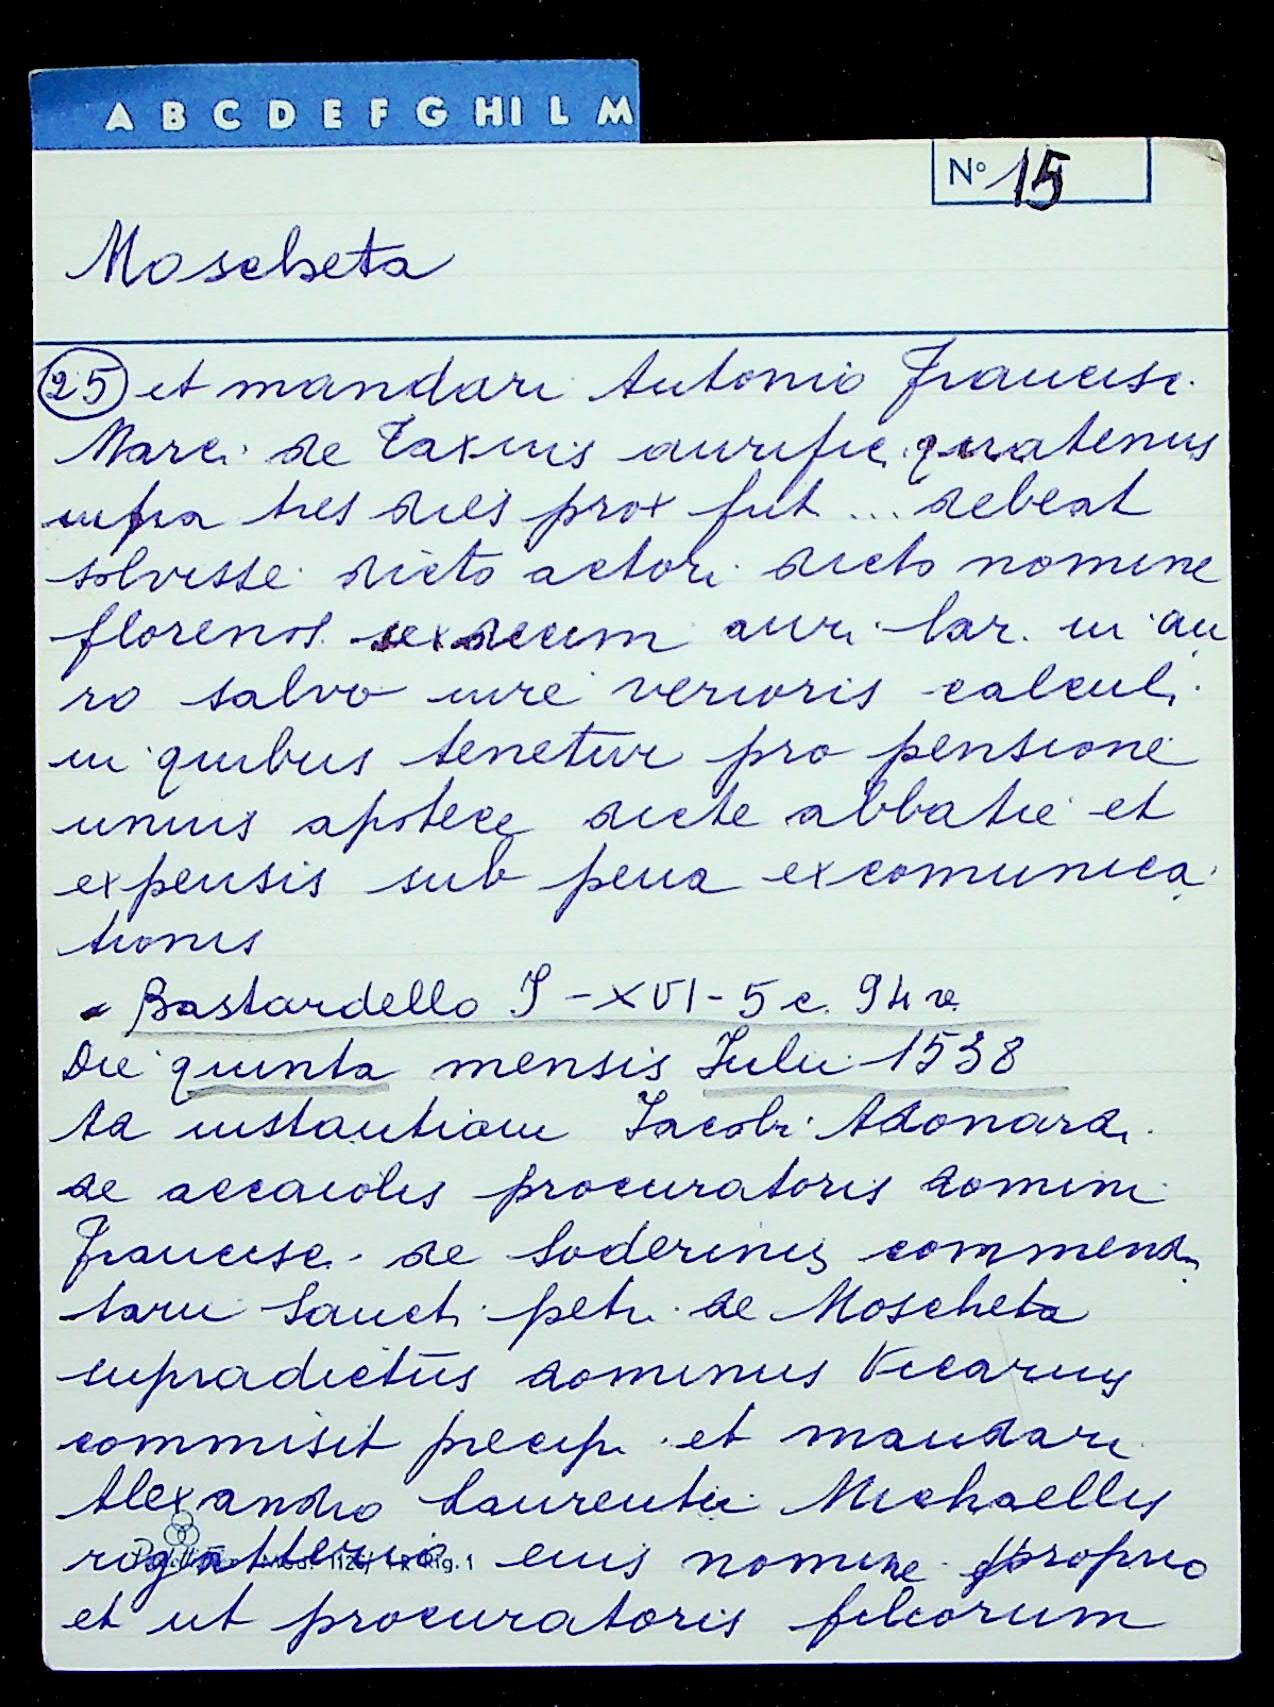 A B C D E F G HI L M
N° 15
Moscheta
25 et mandari Antonio Francisci
Marci de Taxinis aurifici quatenus
infra tres dies prox fut ... debeat
solvisse dicto actori dicto nomine
florenos sexdecim auri lar. in au
ro salvo iure verioris calculi
in quibus tenetur pro pensione
unius apotece dicte abbatie et
expensis sub pena excomunica
tionis
Bastardello I - XVI - 5 c. 94 v.
Die quinta mensis Iulii 1538
Ad instantiam Jacobi Adonardi
de acciaiolis procuratoris domini
Francisci de Soderinis commenda
tarii Sancti petri de Moscheta
supradictus dominus Vicarius
commisit precipi et mandari
Alexandro Laurentii Michaellis
rigatterio eius nomine proprio
et ut procuratoris filiorum